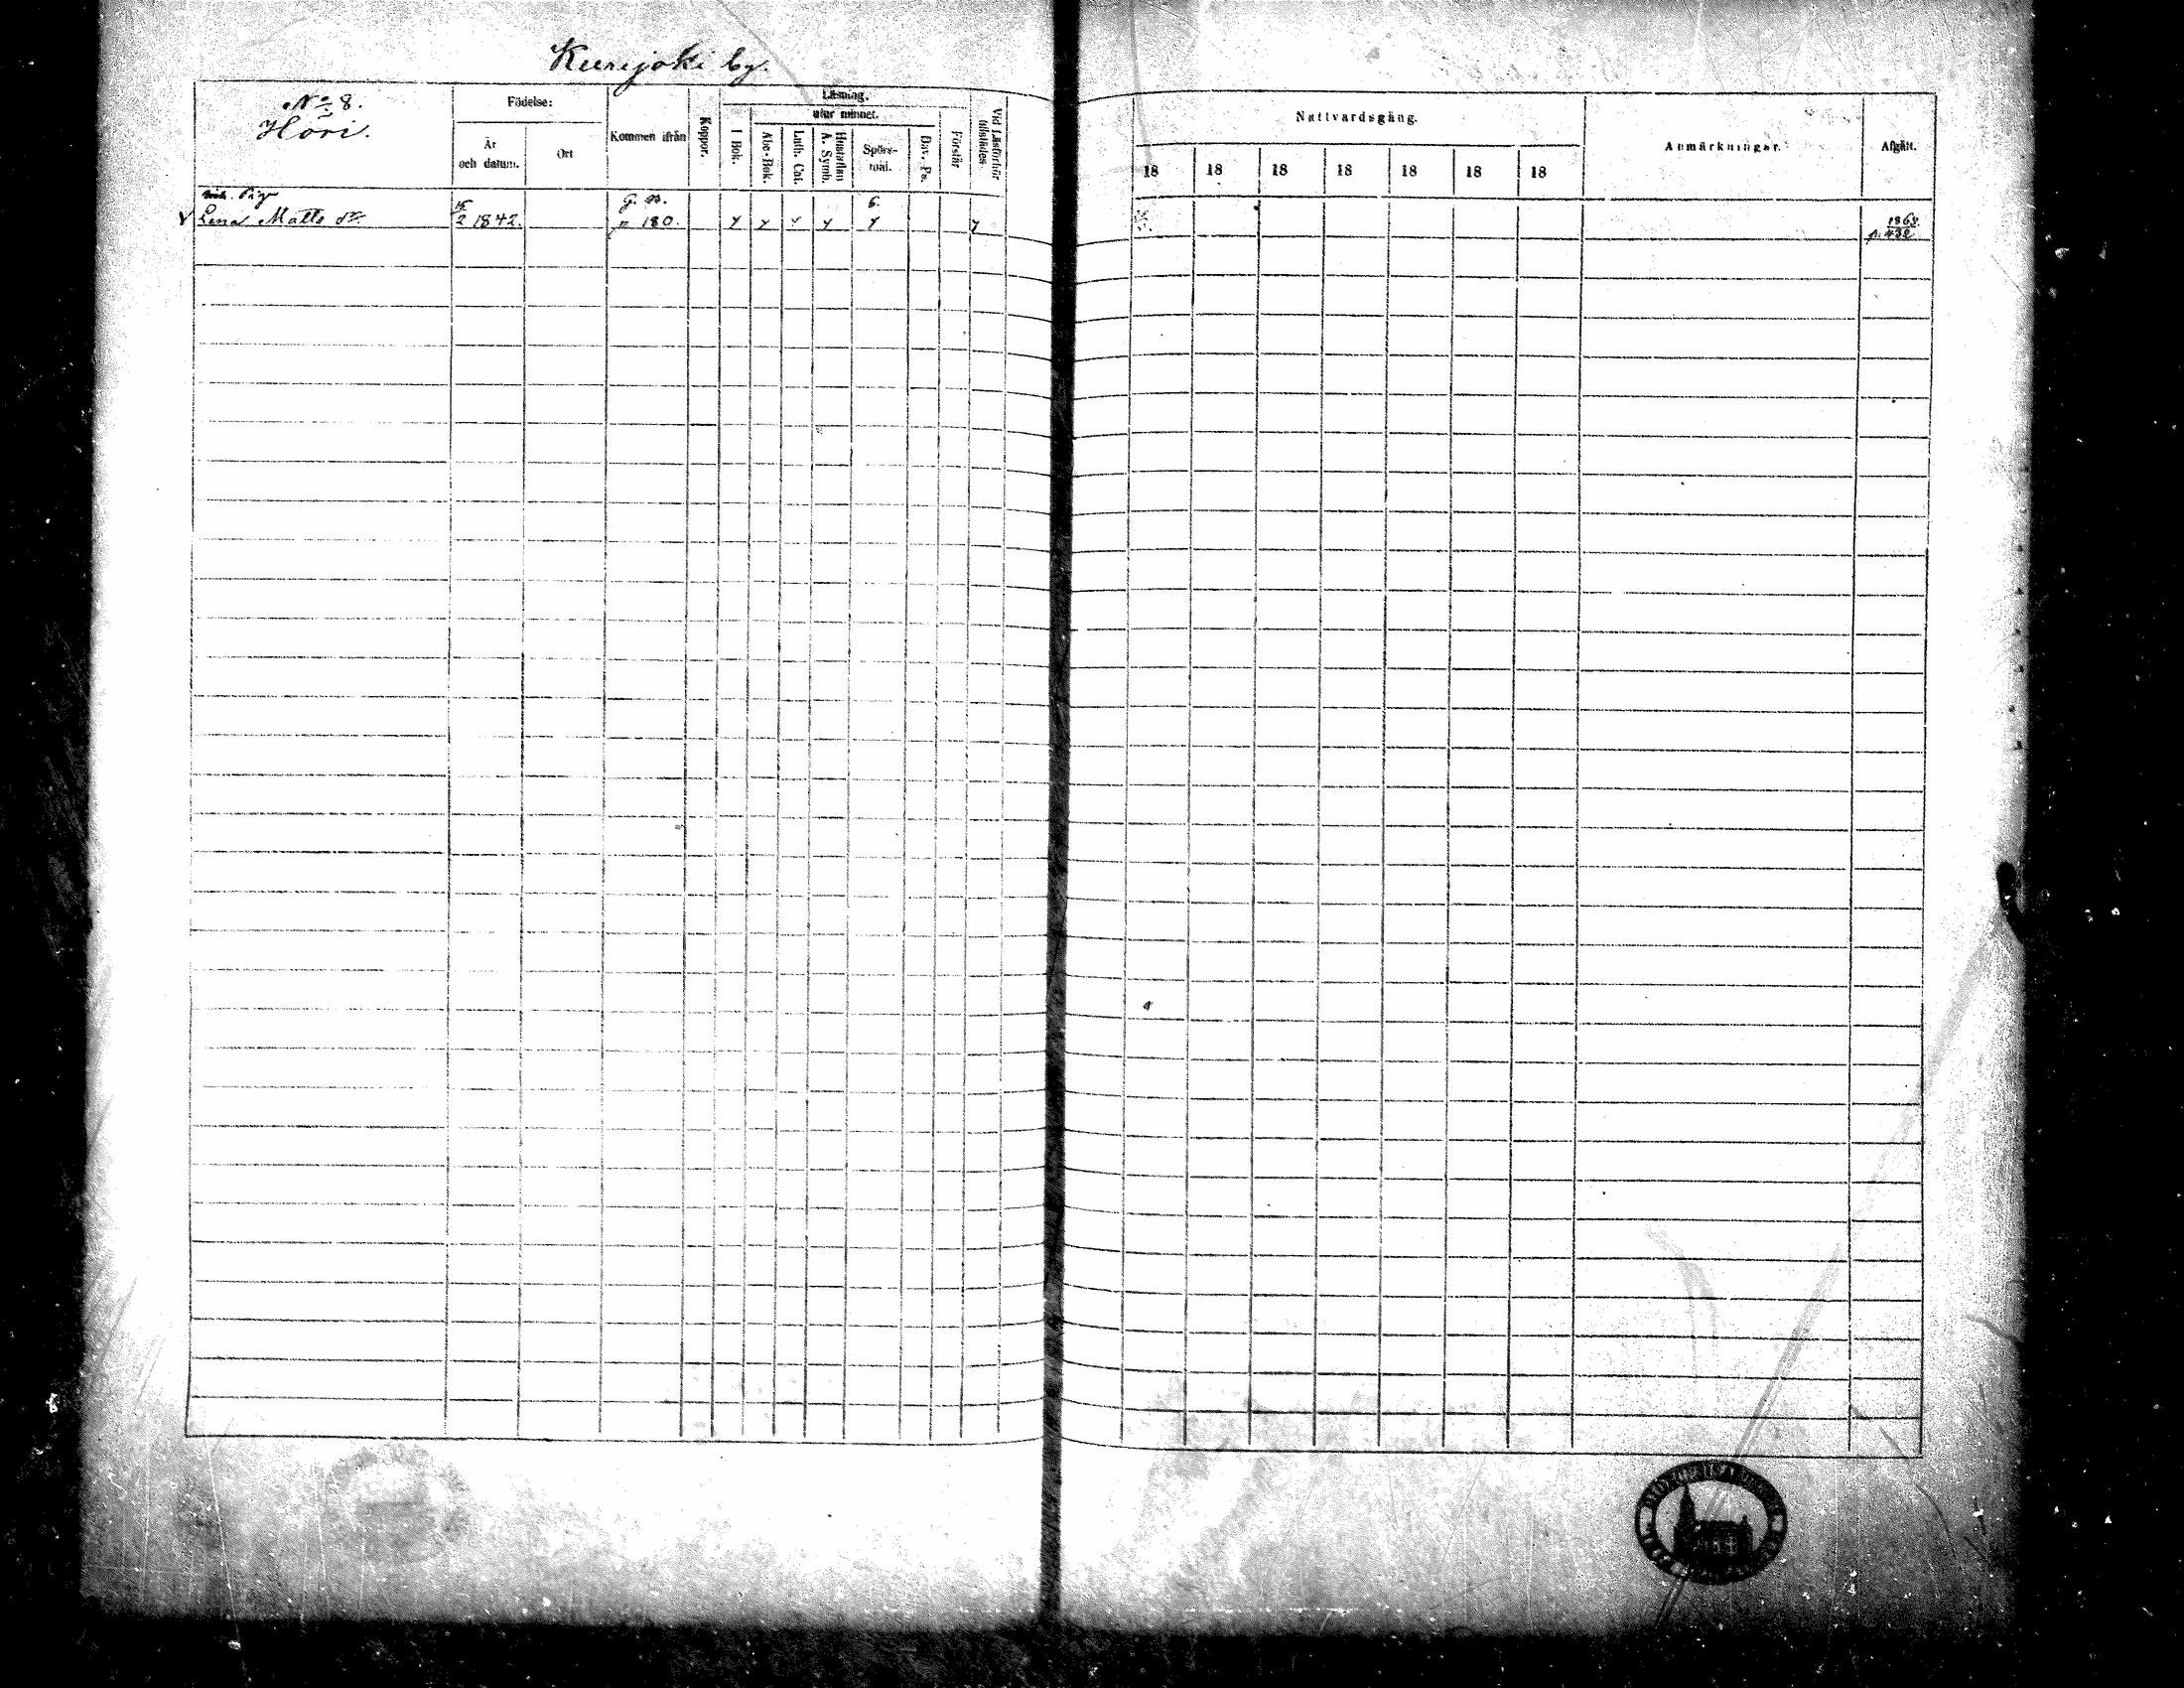 Kurejoki by.
No 8.
Höri.
Födelse:
År och datum.
Ort
Kommen ifrån
Koppor.
Läsning.
utur minnet.
I Bok.
Abc-Bok.
Luth. Cat.
Hustaflan A. Symb.
Spörs-mål.
Dav. Ps.
Förstår
Vid Läsförhör tillstädes
Nattvardsgång.
18 18 18 18 18 18 18
Anmärkningar.
Afgått.
Piga
15 G. B. 6.
v Lena Matts dr 2 1842. " 180. y y v y y y 1868
p. 432